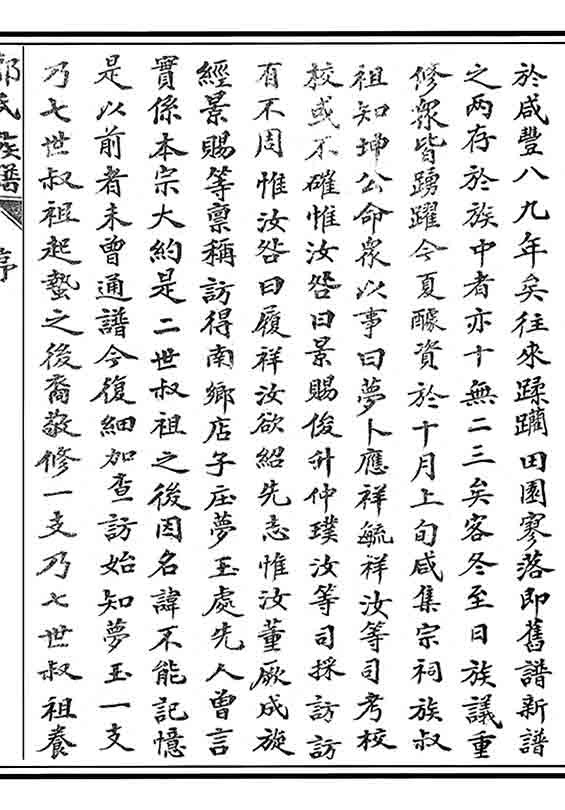 於咸豐八九年矣往來蹂躪田園寥落即舊譜新譜
之两存於族中者亦十無二三矣客冬至日族議重
修眾皆踴躍今夏醵資於十月上旬咸集宗祠族叔
祖知坤公命眾以事曰夢卜應祥毓祥汝等司考校
校或不確惟汝咎曰景賜俊升仲璞汝等司採訪訪
有不周惟汝咎曰履祥汝欲紹先志惟汝董厥成旋
經景賜等稟稱訪得南鄉店子庄夢玉處先人曾言
實係本宗大約是二世叔祖之後因名諱不能記憶
是以前者未曾通譜今復細加查訪始知夢玉一支
乃七世叔祖起蟄之後裔敬修一支乃七世叔祖養
郭氏族譜 序